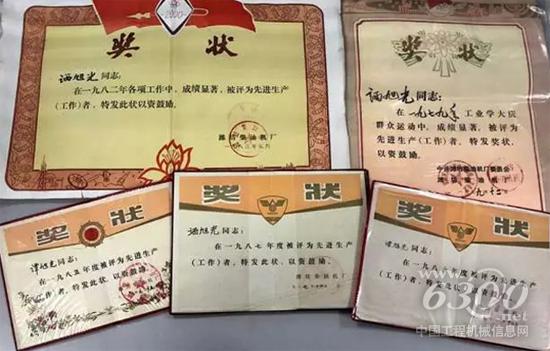 2000
奖 状
谭旭光同志:
在一九八二年各项工作中,成绩显著,被评为先进生产
(工作)者,特发此状以资鼓励。
潍坊柴油机厂
奖 状
谭旭光同志:
在一九七九年工业学大庆
群众运动中,成绩显著,被评为
先进生产(工作)者,特发奖状,
以资鼓励。
潍坊柴油机厂
奖 状
谭旭光同志:
在一九八五年度被评为先进生产
(工作)者,特发此状,以资鼓励。
奖 状
谭旭光同志:
在一九八七年度被评为先进生产
(工作)者,特发此状,以资鼓励。
潍坊柴油机厂
奖 状
谭旭光同志:
年度被评为先进生产
(工作)者,特发此状,以资鼓励。
6300
.net
中国工程机械信息网